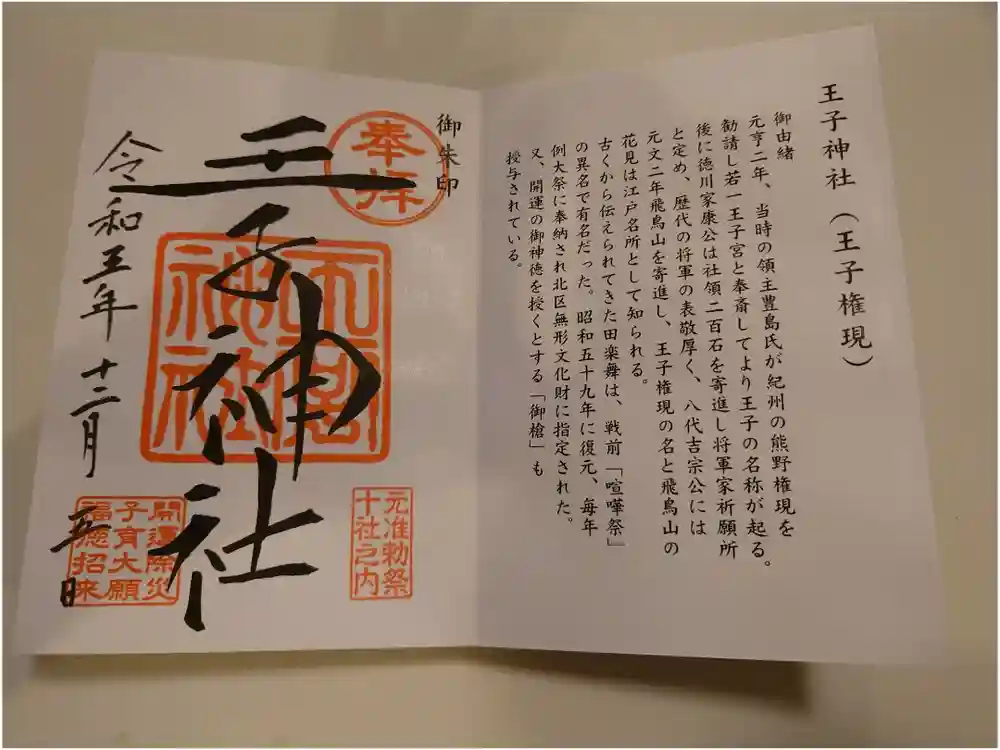 王子神社（王子権現）
御由緒
元亨二年、当時の領主豊島氏が紀州の熊野権現を
勧請し若一王子宮と奉斎してより王子の名称が起る。
後に徳川家康公は社領二百石を寄進し将軍家祈願所
と定め、歴代の将軍の表敬厚く、八代吉宗公には
元文二年飛鳥山を寄進し、王子権現の名と飛鳥山の
花見は江戸名所として知られる。
古くから伝えられてきた田楽舞は、戦前「喧嘩祭」
の異名で有名だった。昭和五十九年に復元、毎年
例大祭に奉納され北区無形文化財に指定された。
又、開運の御神徳を授くとする「御槍」も
授与されている。
御朱印
奉拝
元准勅祭
十社之内
王子神社
王子
神社
令和五年十二月
五日
開運除災
子育大願
福徳招来